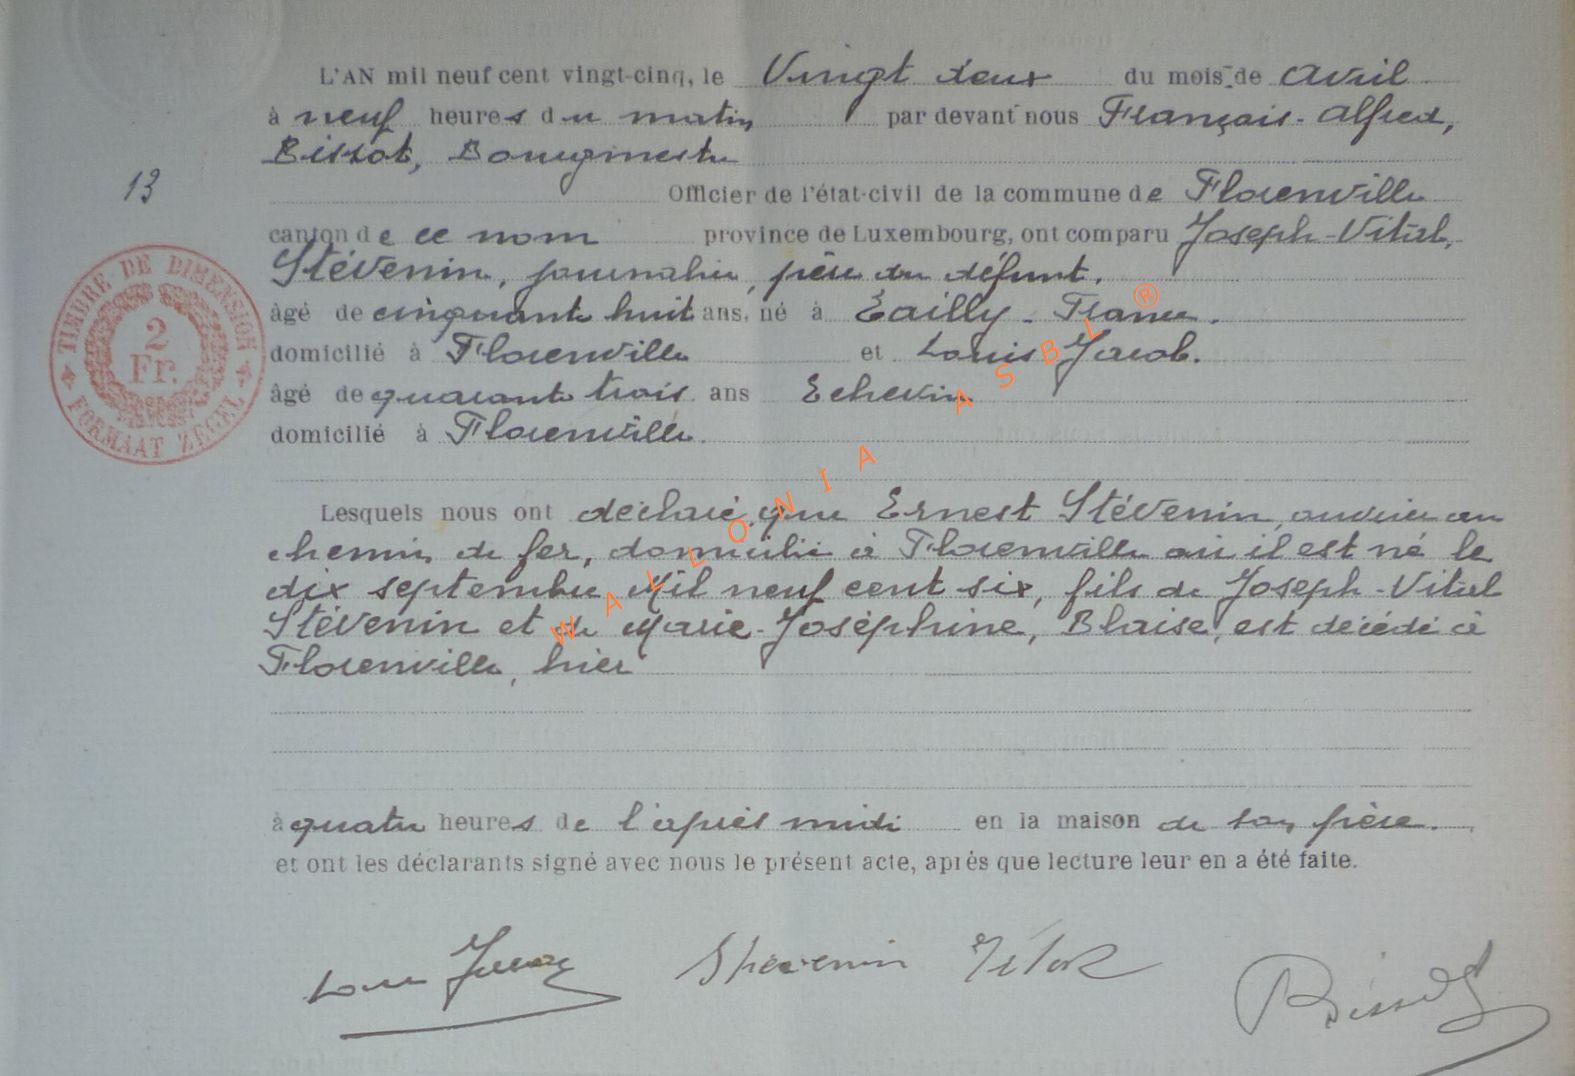 L'AN mil neuf cent vingt-cinq, le Vingt deux du mois de Avril
à neuf heures du matin par devant nous François-Alfred,
Bissot, Bourgmestre
13
Officier de l'état-civil de la commune de Florenville
canton de ce nom province de Luxembourg, ont comparu Joseph-Vital,
Stévenin, journalier, père du défunt.
âgé de cinquante huit ans, né à Tailly - France.
domicilié à Florenville et Louis Jacob.
âgé de quarante trois ans Echevin
domicilié à Florenville.
TIMBRE DE DIMENSION
2
Fr.
FORMAAT ZEGEL
Lesquels nous ont déclaré que Ernest Stévenin, ouvrier au
chemin de fer, domicilié à Florenville où il est né le
dix septembre Mil neuf cent six, fils de Joseph-Vital
Stévenin et de Marie-Joséphine, Blaise, est décédé à
Florenville, hier
à quatre heures de l'après midi en la maison de son père.
et ont les déclarants signé avec nous le présent acte, aprés que lecture leur en a été faite.
Louis Jacob Stévenin Bissot
WALLONIA ASBL ®